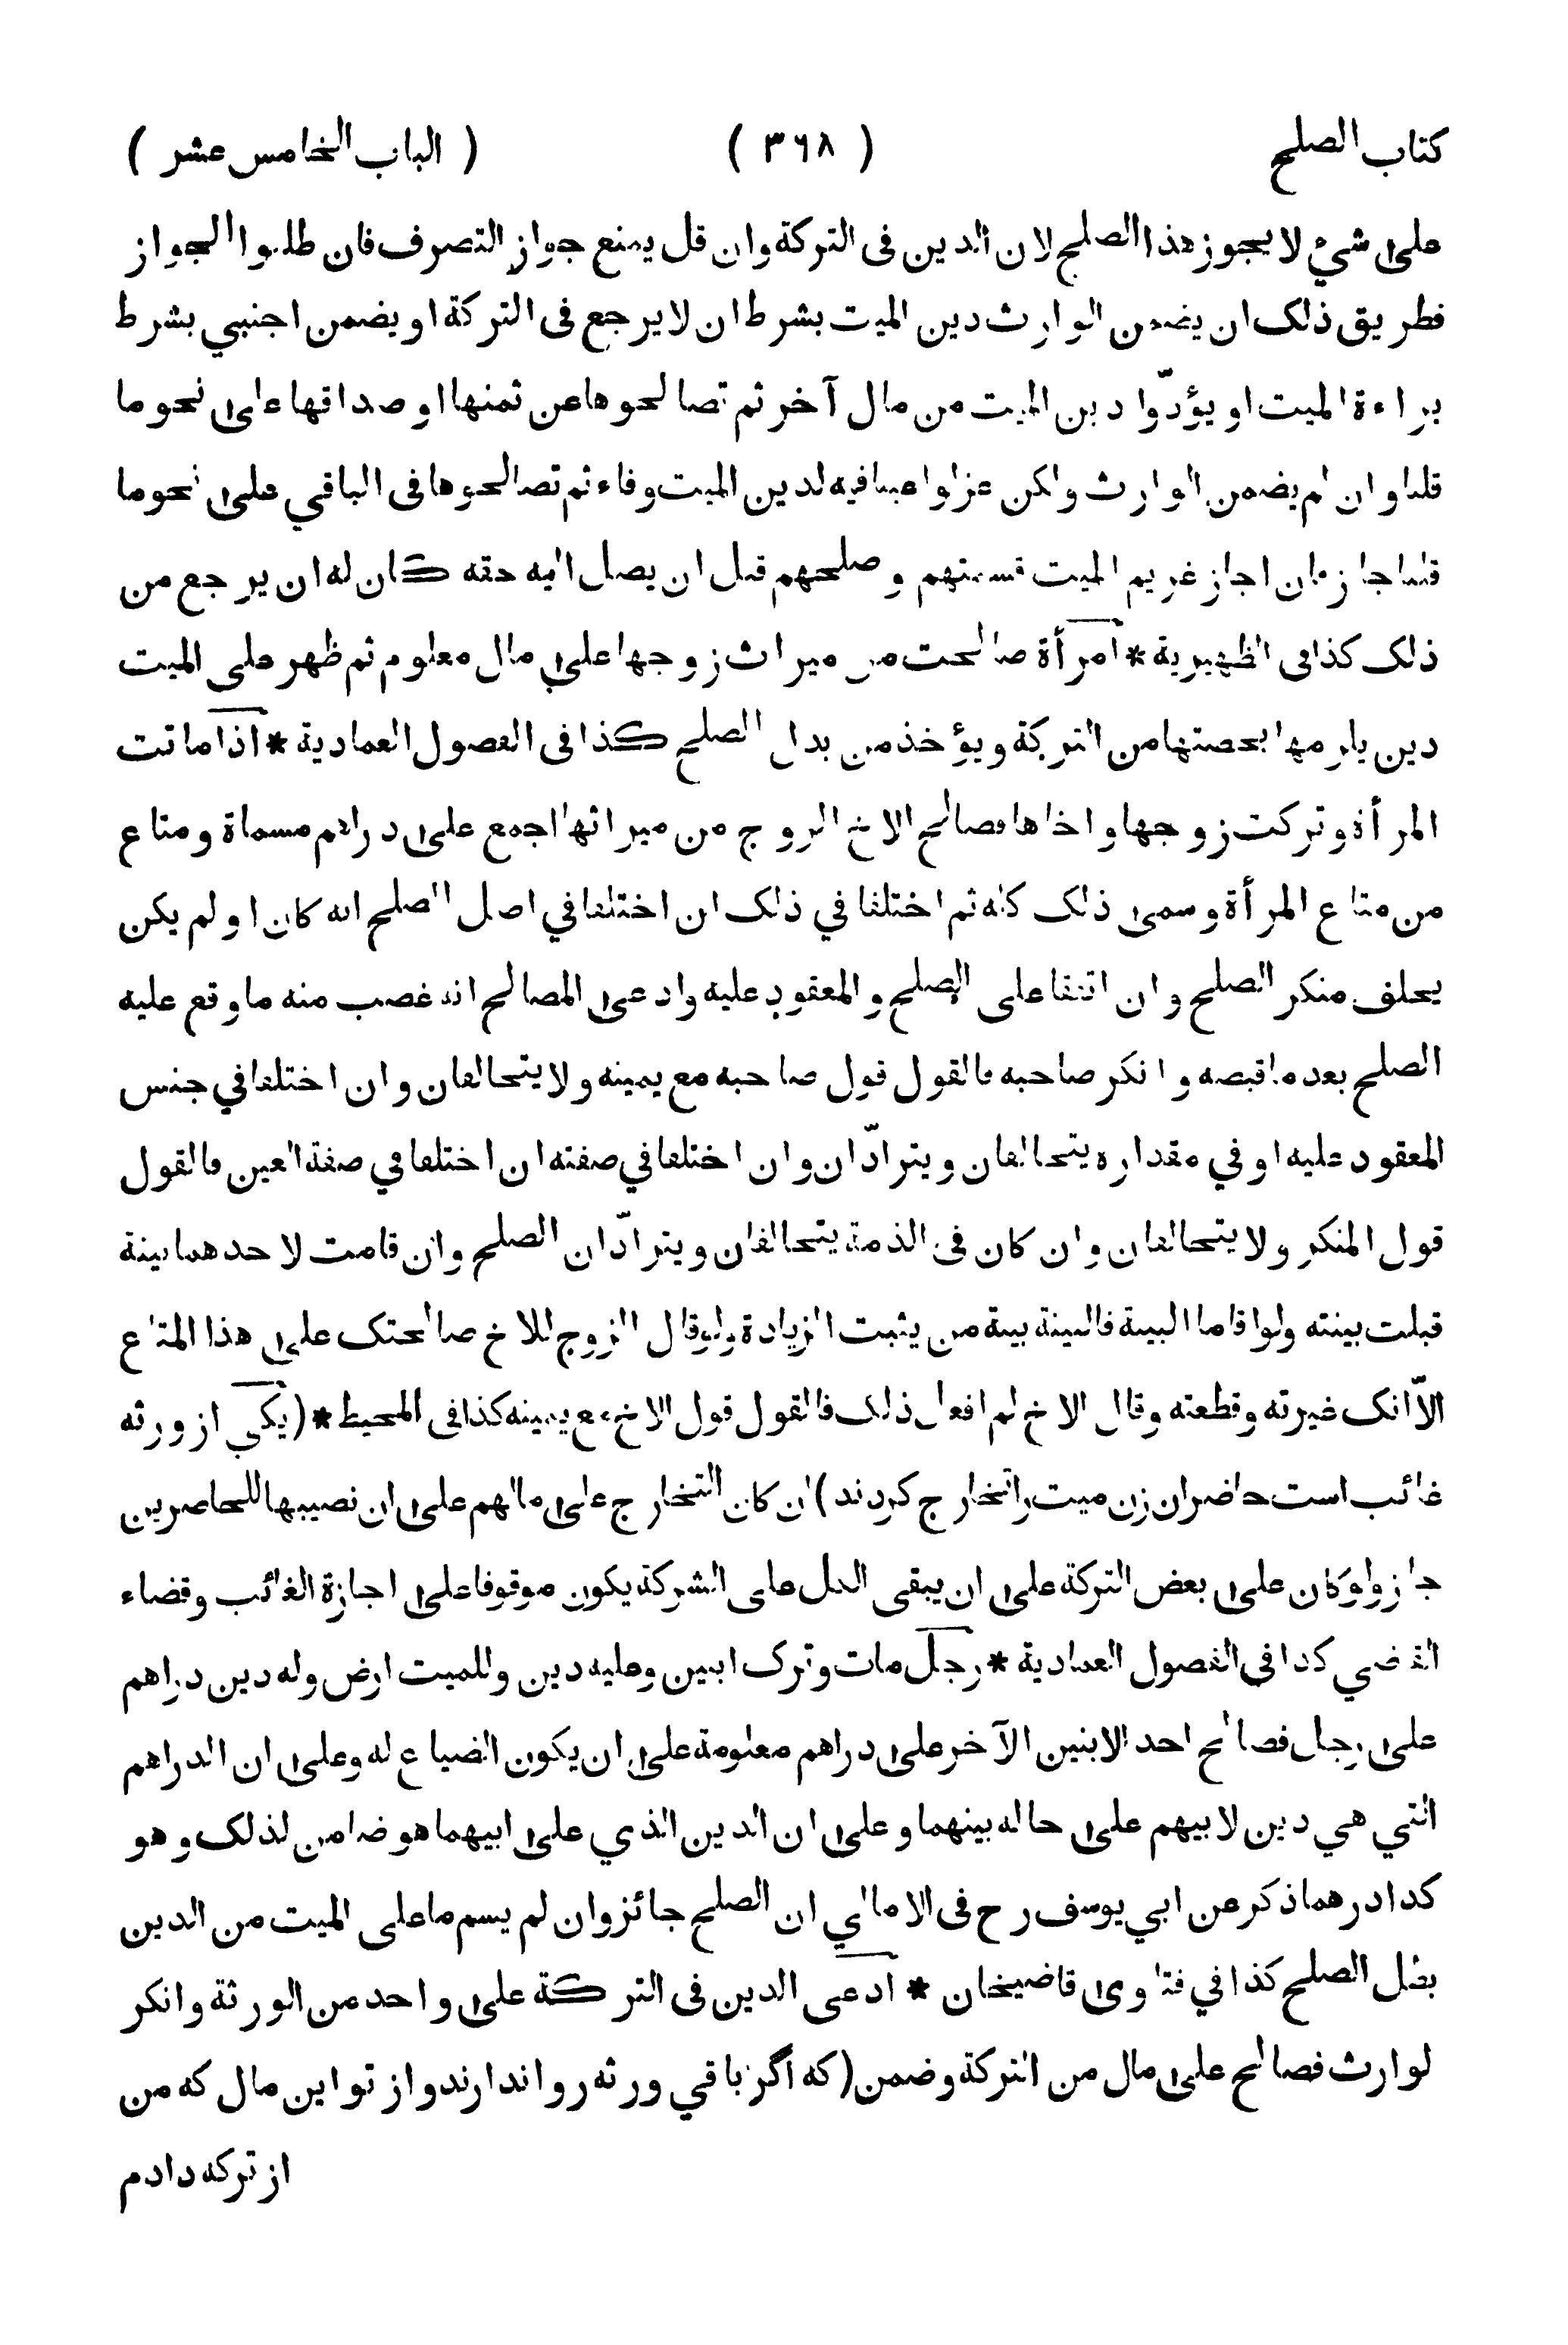 كتاب الصلح ( ٣٦٨ ) ( الباب الخامس عشر )
على شيء لا يجوز هذا الصلح لان الدين فى التركة وان قل يمنع جواز التصرف فان طلبوا الجواز
فطريق ذلك ان يضمن الوارث دين الميت بشرط ان لا يرجع فى التركة او يضمن اجنبي بشرط
براءة الميت او يؤدّوا دين الميت من مال آخر ثم تصالحوها عن ثمنها او صداقها على نحو ما
قلنا وان لم يضمن الوارث ولكن عزلوا عينا فيه لدين الميت وفاء ثم تصالحوها فى الباقي على نحو ما
قلنا جاز فان اجاز غريم الميت قسمتهم وصلحهم قبل ان يصل اليه حقه كان له ان يرجع من
ذلك كذا فى الظهيرية * امرأة صالحت من ميراث زوجها على مال معلوم ثم ظهر على الميت
دين يلزمها بحصتها من التركة ويؤخذ من بدل الصلح كذا فى الفصول العمادية * اذا ماتت
المرأة وتركت زوجها واخاها فصالح الاخ الزوج من ميراثها اجمع على دراهم مسماة ومتاع
من متاع المرأة وسمى ذلك كله ثم اختلفا في ذلك ان اختلفا في اصل الصلح انه كان او لم يكن
يحلف منكر الصلح وان اتفقا على الصلح والمعقود عليه وادعى المصالح انه غصب منه ما وقع عليه
الصلح بعد ما قبضه وانكر صاحبه فالقول قول صاحبه مع يمينه ولا يتحالفان وان اختلفا في جنس
المعقود عليه او في مقداره يتحالفان ويترادّان وان اختلفا في صفته ان اختلفا في صفة العين فالقول
قول المنكر ولا يتحالفان وان كان فى الذمة يتحالفان ويترادّان الصلح وان قامت لاحدهما بينة
قبلت بينته ولو اقاما البينة فالبينة بينة من يثبت الزيادة ولو قال الزوج للاخ صالحتك على هذا المتاع
الاّ انك غيرته وقطعته وقال الاخ لم افعل ذلك فالقول قول الاخ مع يمينه كذا فى المحيط * ( يكى از ورثه
غائب است حاضران زن ميت را تخارج كردند ) ان كان التخارج على مالهم على ان نصيبها للحاضرين
جاز ولو كان على بعض التركة على ان يبقى الكل على الشركة يكون موقوفا على اجازة الغائب وقضاء
القاضي كذا فى الفصول العمادية * رجل مات وترك ابنين وعليه دين وللميت ارض وله دين دراهم
على رجل فصالح احد الابنين الآخر على دراهم معلومة على ان يكون الضياع له وعلى ان الدراهم
التي هي دين لابيهم على حاله بينهما وعلى ان الدين الذي على ابيهما هو ضامن لذلك وهو
كذا درهما ذكر عن ابي يوسف رح فى الامالي ان الصلح جائز وان لم يسم ما على الميت من الدين
بطل الصلح كذا في فتاوى قاضيخان * ادعى الدين فى التركة على واحد من الورثة وانكر
لوارث فصالح على مال من التركة وضمن ( كه اگر باقي ورثه روا ندارند واز تو اين مال كه من
از تركه دادم